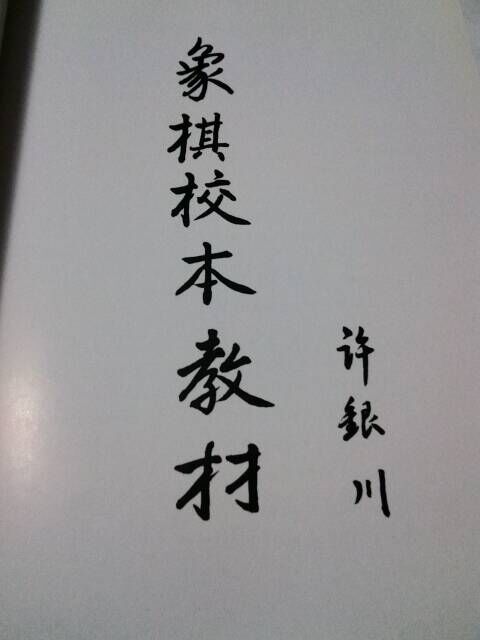 象棋校本教材
许銀川